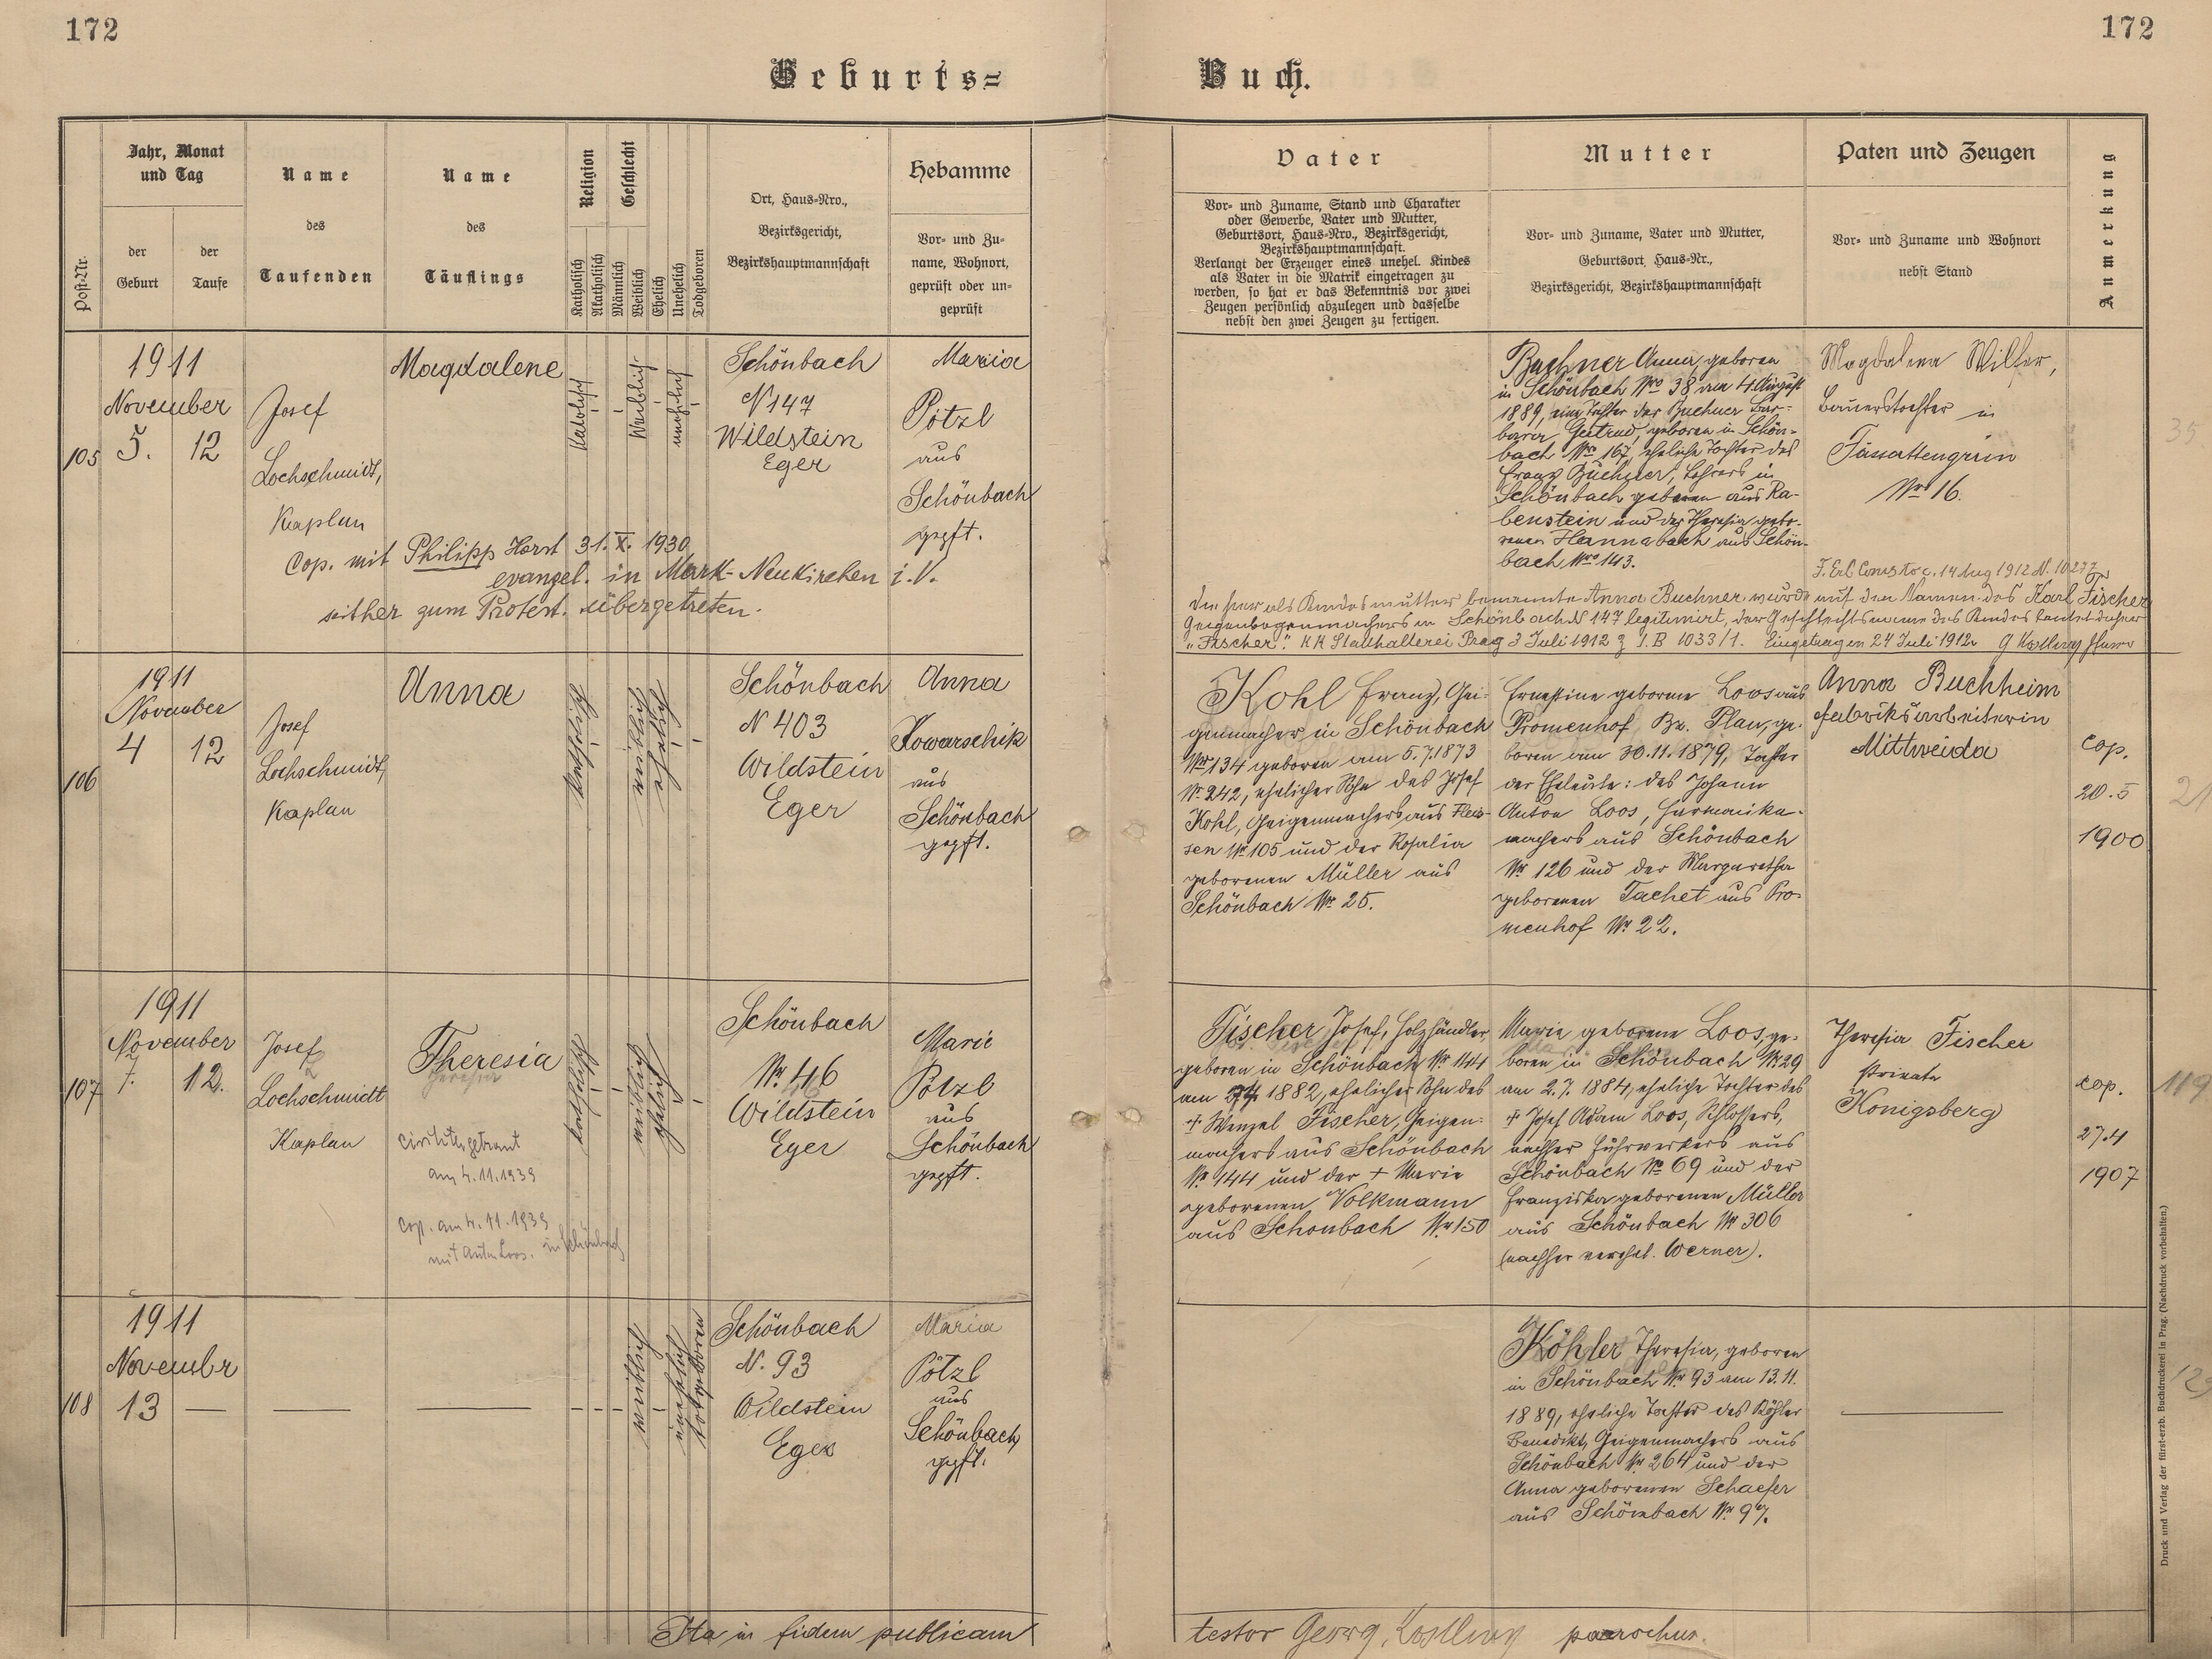 172
172
Geburts=
Buch.
Post-Nr.
Jahr, Monat
und Tag
der
Geburt
der
Taufe
Name
des
Taufenden
Name
des
Täuflings
Religion
Katholisch
Akatholisch
Geschlecht
Männlich
Weiblich
Ehelich
Unehelich
Todgeboren
Ort, Haus-Nro.,
Bezirksgericht,
Bezirkshauptmannschaft
Hebamme
Vor- und Zu-
name, Wohnort,
geprüft oder un-
geprüft
Vater
Vor- und Zuname, Stand und Charakter
oder Gewerbe, Vater und Mutter,
Geburtsort, Haus-Nro., Bezirksgericht,
Bezirkshauptmannschaft.
Verlangt der Erzeuger eines unehel. Kindes
als Vater in die Matrik eingetragen zu
werden, so hat er das Bekenntnis vor zwei
Zeugen persönlich abzulegen und dasselbe
nebst den zwei Zeugen zu fertigen.
Mutter
Vor- und Zuname, Vater und Mutter,
Geburtsort, Haus-Nr.,
Bezirksgericht, Bezirkshauptmannschaft
Paten und Zeugen
Vor- und Zuname und Wohnort
nebst Stand
Anmerkung
105
1911
November
5. 12
Josef
Lochschmidt,
Kaplan
Magdalene
Katolisch
Weiblich
unehelich
Schönbach
N 147
Wildstein
Eger
Maria
Pötzl
aus
Schönbach
gepft.
Cop. mit Philipp Horst 31. X. 1930
evangel. in Mark-Neukirchen i. V.
seither zum Protest. übergetreten.
Buchner Anna, geboren
in Schönbach Nro 38 am 4 August
1889, eine Tochter der Buchner Bar-
bara Gertrud, geboren in Schön-
bach Nr. 167, eheliche Tochter des
Franz Buchner, Lehrers in
Schönbach geboren aus Ra-
benstein und der Theresia gebo-
renen Hannabach aus Schön-
bach Nro 143.
Magdalena Wilfer,
Bauerstochter in
Fassattengrün
Nr. 16.
35
14 Aug 1912 N. 10277
Die hier als Kindesmutter benannte Anna Buchner wurde auf den Namen des Karl Fischer
Geigenbogenmachers in Schönbach N 147 legitimirt, der Geschlechtsname des Kindes lautet daher
„Fischer". KK Statthalterei Prag 3 Juli 1912 Z 1. B 1033/1. Eingetragen 24 Juli 1912
106
1911
November
4 12
Josef
Lochschmidt,
Kaplan
Anna
katholisch
weiblich
ehelich
Schönbach
N 403
Wildstein
Eger
Anna
Kowarschik
aus
Schönbach
gepft.
Kohl Franz, Gei-
genmacher in Schönbach
Nr. 134 geboren am 5.7.1873
Nr. 242, ehelicher Sohn des Josef
Kohl, Geigenmachers aus Fleis-
sen Nr. 105 und der Rosalia
geborenen Müller aus
Schönbach Nr. 25.
Ernestine geborene Loos aus
Promenhof, Bz. Plan, ge-
boren am 30.11.1879, Tochter
der Eheleute: des Johann
Anton Loos, Harmonika-
machers aus Schönbach
Nr. 126 und der Margaretha
geborenen Tachet aus Pro-
menhof Nr. 22.
Anna Buchheim
Fabriksarbeiterin
Mittweida
cop.
20.5
1900
21
107
1911
November
7. 12.
Josef
Lochschmidt
Kaplan
Theresia
civiliter getraut
am 4.11.1939
cop. am 4.11.1939
mit Anton Loos. in Schönbach
katholisch
weiblich
ehelich
Schönbach
Nr. 416
Wildstein
Eger
Marie
Pötzl
aus
Schönbach
gepft.
Fischer Josef, Holzhändler,
geboren in Schönbach Nr. 144
am 1882, ehelicher Sohn des
+ Wenzel Fischer, Geigen-
machers aus Schönbach
Nr. 144 und der + Marie
geborenen Volkmann
aus Schönbach Nr. 150
Marie geborene Loos, ge-
boren in Schönbach Nr. 29
am 2.7. 1884, eheliche Tochter des
+ Josef Adam Loos, Schlossers,
nachher Fuhrwerkers aus
Schönbach Nr. 69 und der
Franziska geborenen Müller
aus Schönbach Nr. 306
(nachher verehel. Werner).
Theresia Fischer
Private
Königsberg
cop.
27.4
1907
119
108
1911
Novembr
13
weiblich
unehelich
totgeboren
Schönbach
N. 93
Wildstein
Eger
Maria
Pötzl
aus
Schönbach
gepft.
Köhler Theresia, geboren
in Schönbach Nr. 93 am 13.11.
1889, eheliche Tochter des Köhler
Benedikt, Geigenmachers aus
Schönbach Nr. 264 und der
Anna geborenen Schaefer
aus Schönbach Nr. 97.
Ita in fidem publicam
testor Georg Köstling parochus.
Druck und Verlag der fürst-erzb. Buchdruckerei in Prag. (Nachdruck vorbehalten.)